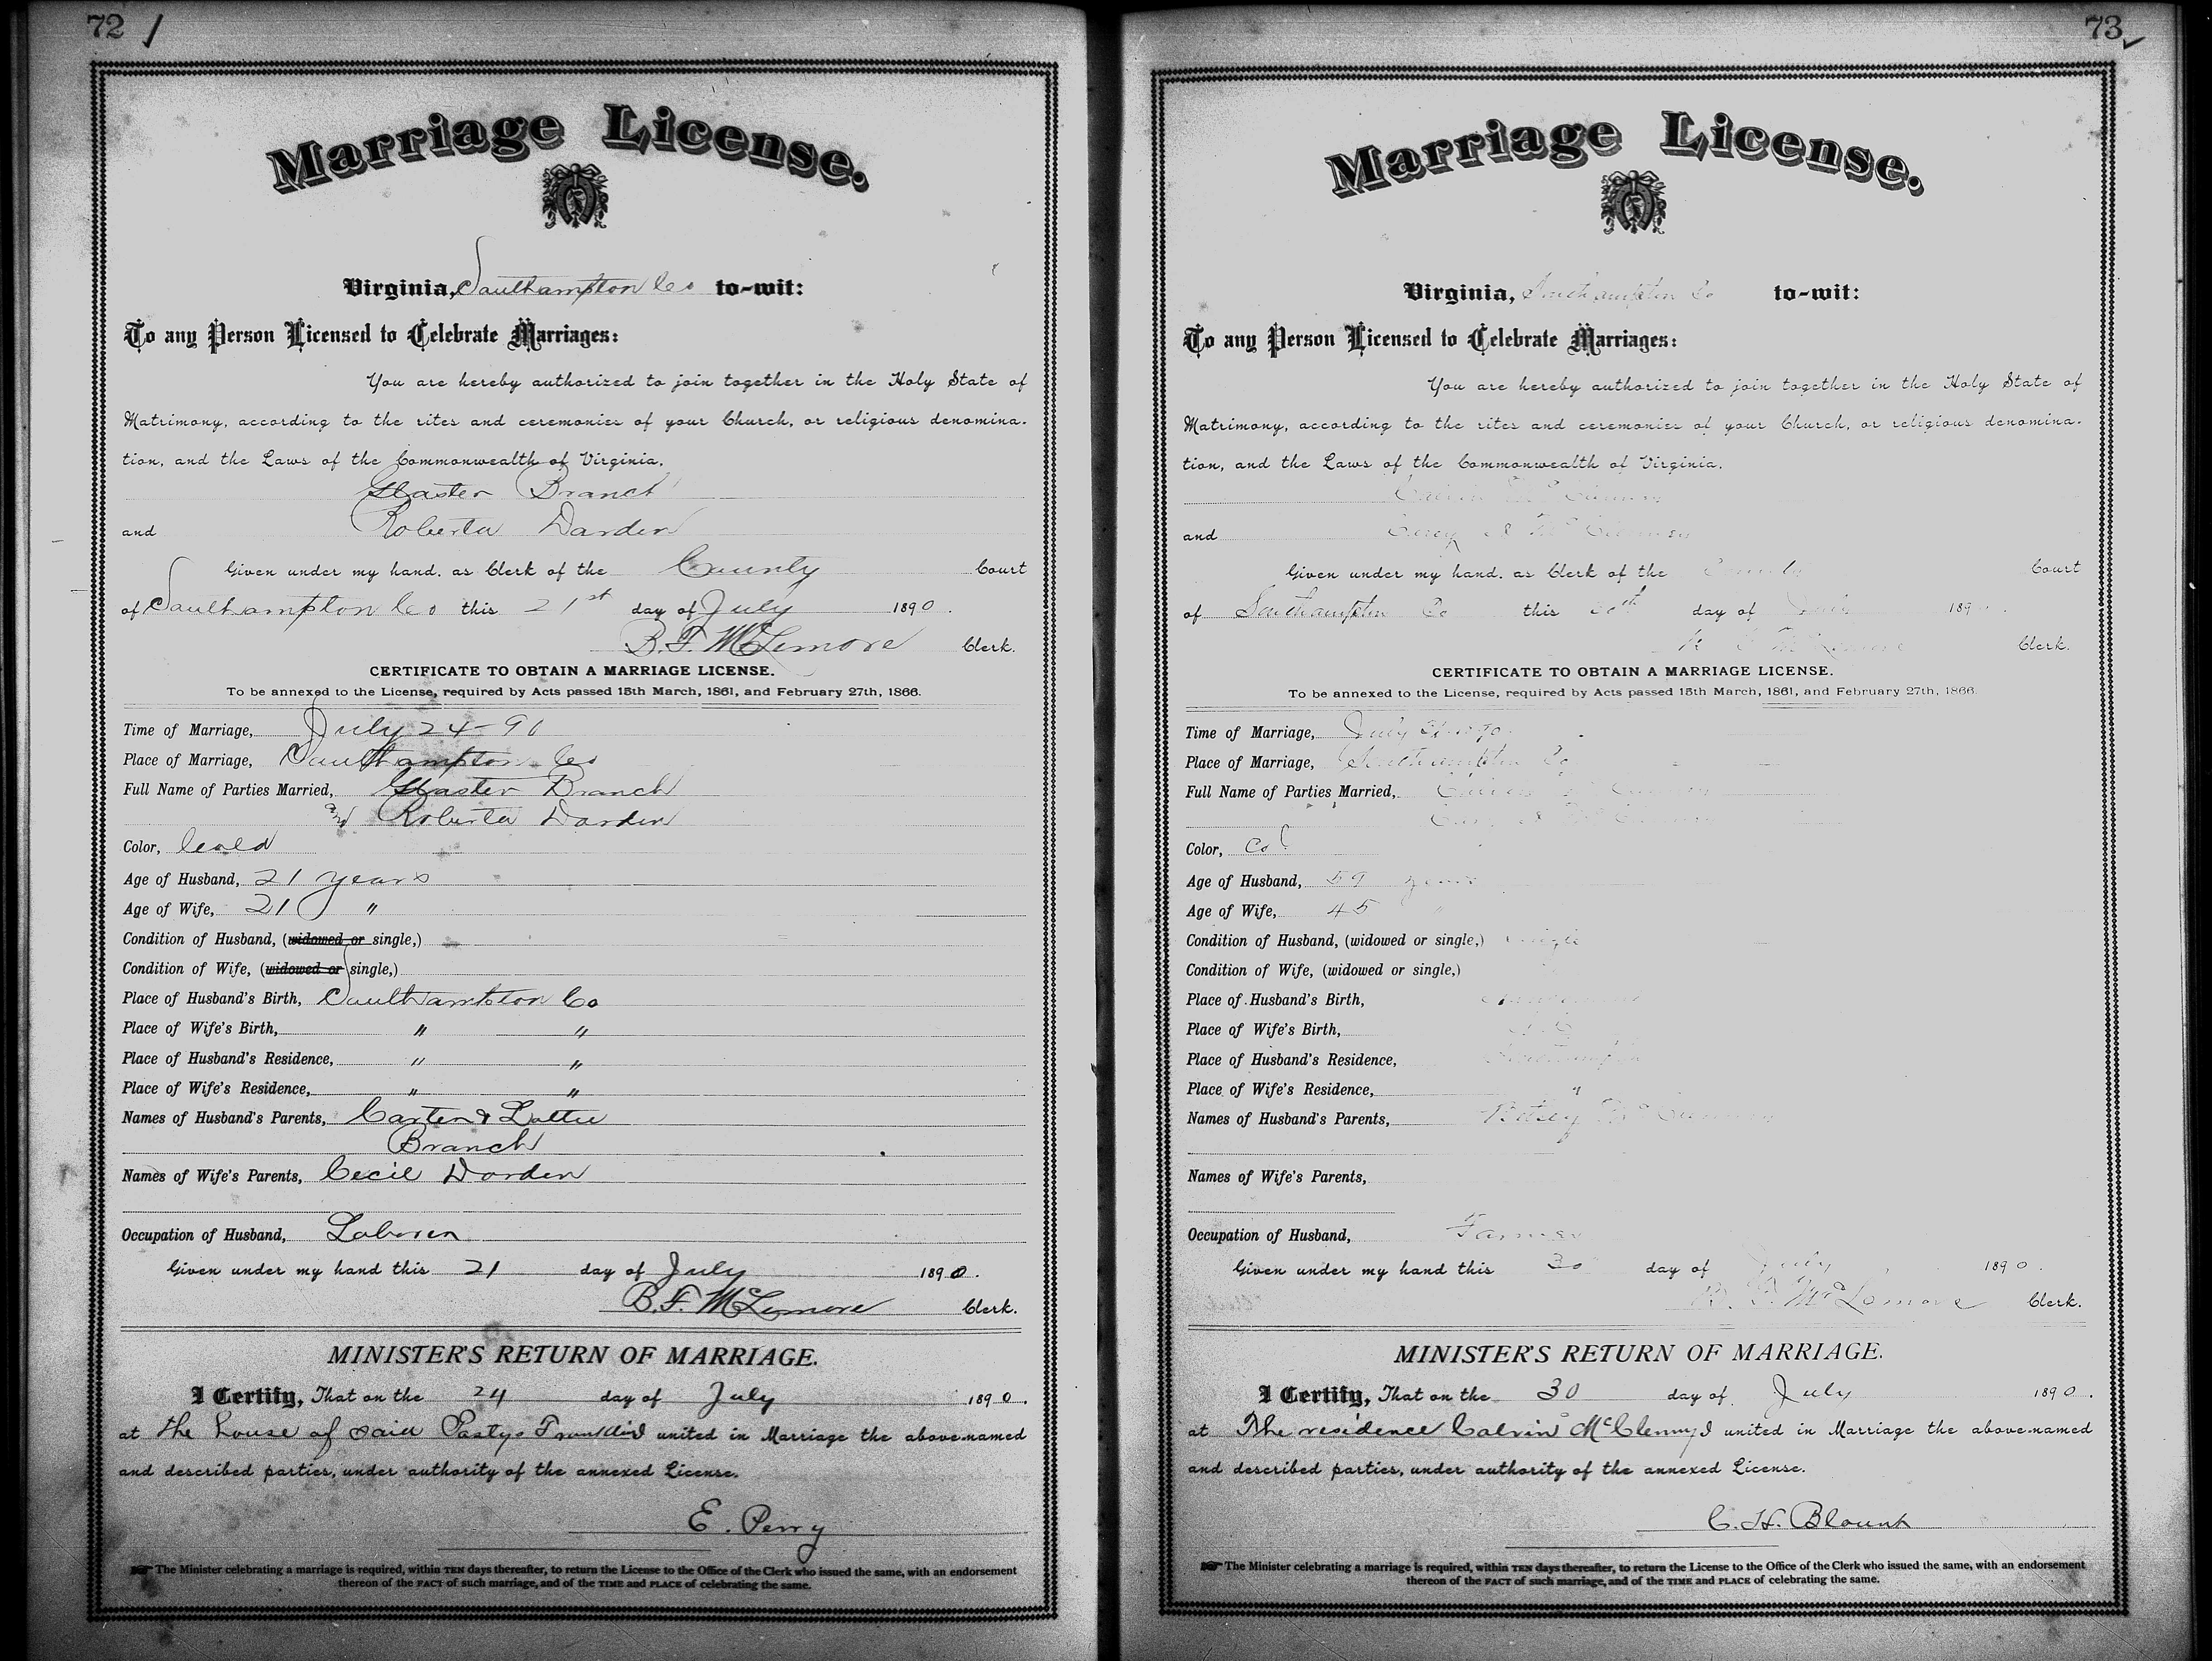 72
Marriage License.
Virginia, Southampton Co to-wit:
To any Person Licensed to Celebrate Marriages:
You are hereby authorized to join together in the Holy State of
Matrimony, according to the rites and ceremonies of your Church, or religious denomina-
tion, and the Laws of the Commonwealth of Virginia.
Branch
and Roberta Darden
Given under my hand, as Clerk of the County Court
of Southampton Co this 21st day of July 1890.
B. F. McLemore Clerk.
CERTIFICATE TO OBTAIN A MARRIAGE LICENSE.
To be annexed to the License, required by Acts passed 15th March, 1861, and February 27th, 1866.
Time of Marriage, July 24-90
Place of Marriage, Southampton Co
Full Name of Parties Married, Branch
and Roberta Darden
Color, Cold
Age of Husband, 21 years
Age of Wife, 21 "
Condition of Husband, (widowed or single,)
Condition of Wife, (widowed or single,)
Place of Husband's Birth, Southampton Co
Place of Wife's Birth, " "
Place of Husband's Residence, " "
Place of Wife's Residence, " "
Names of Husband's Parents, Carter & Lottie
Branch
Names of Wife's Parents, Cecil Darden
Occupation of Husband, Laborer
Given under my hand this 21 day of July 1890.
B. F. McLemore Clerk.
MINISTER'S RETURN OF MARRIAGE.
I Certify, That on the 24 day of July 1890.
at the house of said Partys Franklin I united in Marriage the above-named
and described parties, under authority of the annexed License.
E. Perry
The Minister celebrating a marriage is required, within TEN days thereafter, to return the License to the Office of the Clerk who issued the same, with an endorsement
thereon of the FACT of such marriage, and of the TIME and PLACE of celebrating the same.
73
Marriage License.
Virginia, Southampton Co to-wit:
To any Person Licensed to Celebrate Marriages:
You are hereby authorized to join together in the Holy State of
Matrimony, according to the rites and ceremonies of your Church, or religious denomina-
tion, and the Laws of the Commonwealth of Virginia.
Calvin
and
Given under my hand, as Clerk of the County Court
of Southampton Co this 30th day of July 1890.
McLemore Clerk.
CERTIFICATE TO OBTAIN A MARRIAGE LICENSE.
To be annexed to the License, required by Acts passed 15th March, 1861, and February 27th, 1866.
Time of Marriage, July
Place of Marriage, Southampton Co
Full Name of Parties Married, Calvin
Color, Col
Age of Husband, 59 years
Age of Wife, 45 "
Condition of Husband, (widowed or single,) single
Condition of Wife, (widowed or single,)
Place of Husband's Birth,
Place of Wife's Birth,
Place of Husband's Residence, Southampton
Place of Wife's Residence, "
Names of Husband's Parents, Betsy
Names of Wife's Parents,
Occupation of Husband, Farmer
Given under my hand this 30 day of July 1890.
B. F. McLemore Clerk.
MINISTER'S RETURN OF MARRIAGE.
I Certify, That on the 30 day of July 1890.
at The residence Calvin McClenny I united in Marriage the above-named
and described parties, under authority of the annexed License.
C. H. Blount
The Minister celebrating a marriage is required, within TEN days thereafter, to return the License to the Office of the Clerk who issued the same, with an endorsement
thereon of the FACT of such marriage, and of the TIME and PLACE of celebrating the same.